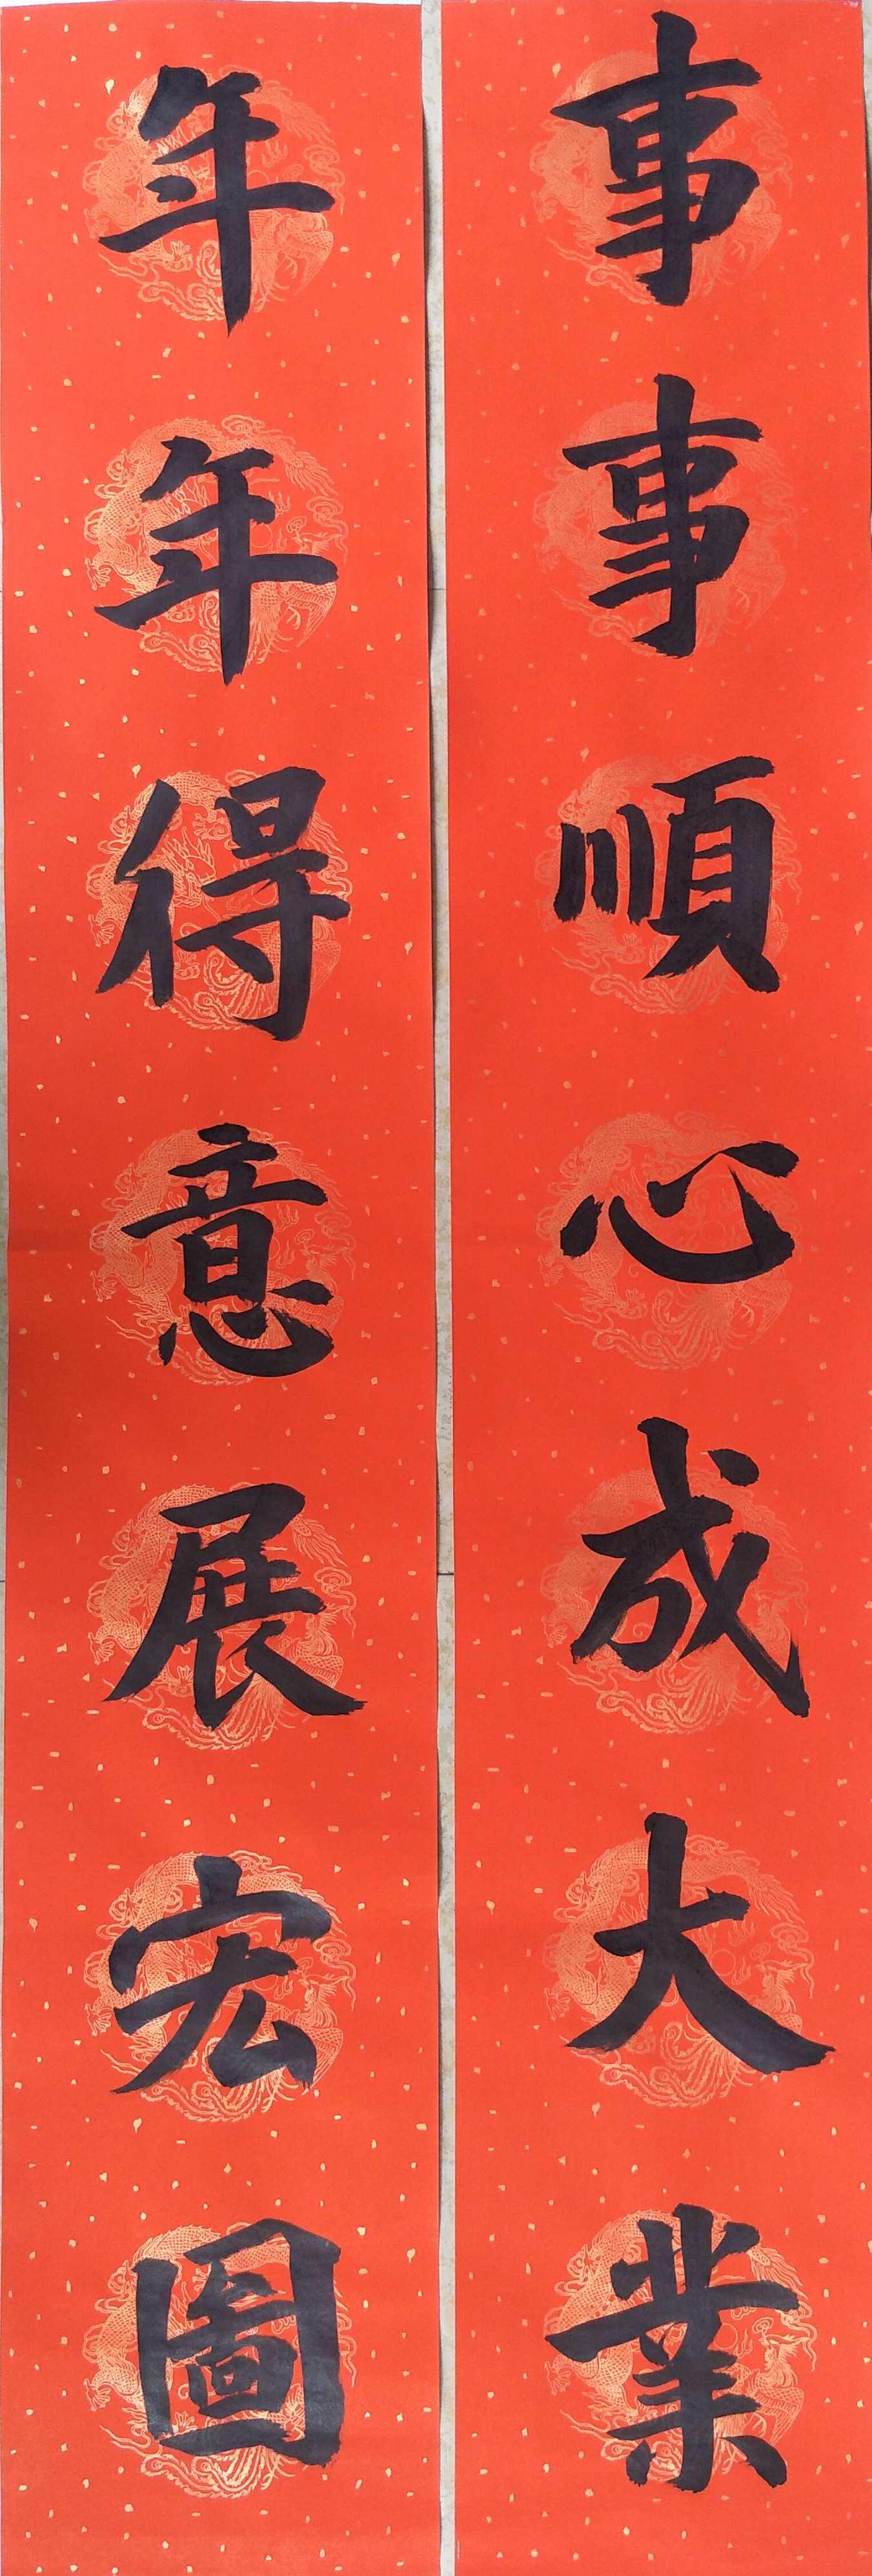 事事順心成大業
年年得意展宏圖